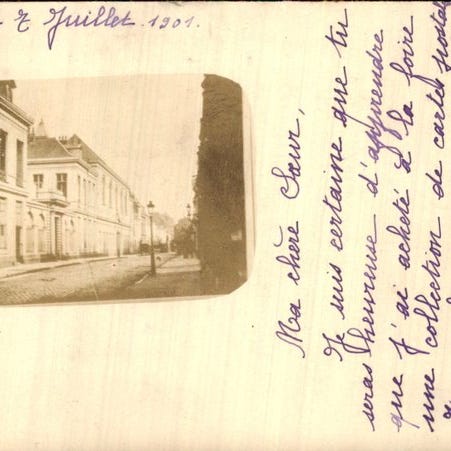 7 Juillet 1901.
Ma chère Sœur,
Je suis certaine que tu
seras heureuse d'apprendre
que j'ai acheté à la foire
une collection de cartes postal